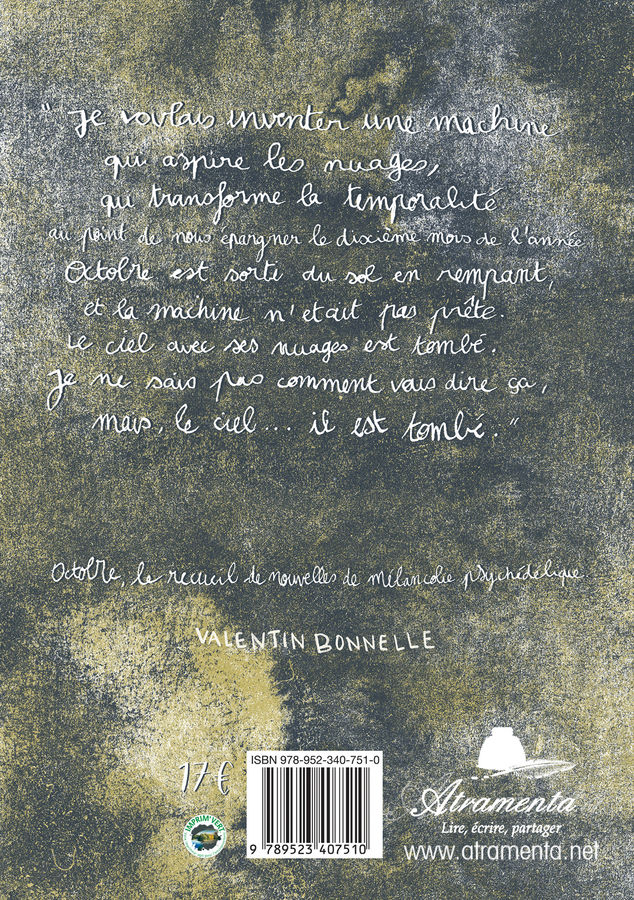 " Je voulais inventer une machine
qui aspire les nuages,
qui transforme la temporalité
au point de nous épargner le dixième mois de l'année
Octobre est sorti du sol en rempant,
et la machine n'était pas prête.
Le ciel avec ses nuages est tombé.
Je ne sais pas comment vous dire ça,
mais, le ciel... il est tombé."
Octobre, le recueil de nouvelles de mélancolie psychédélique.
VALENTIN BONNELLE
ISBN 978-952-340-751-0
17€
IMPRIM'VERT
9 789523 407510
Atramenta
Lire, écrire, partager
www.atramenta.net